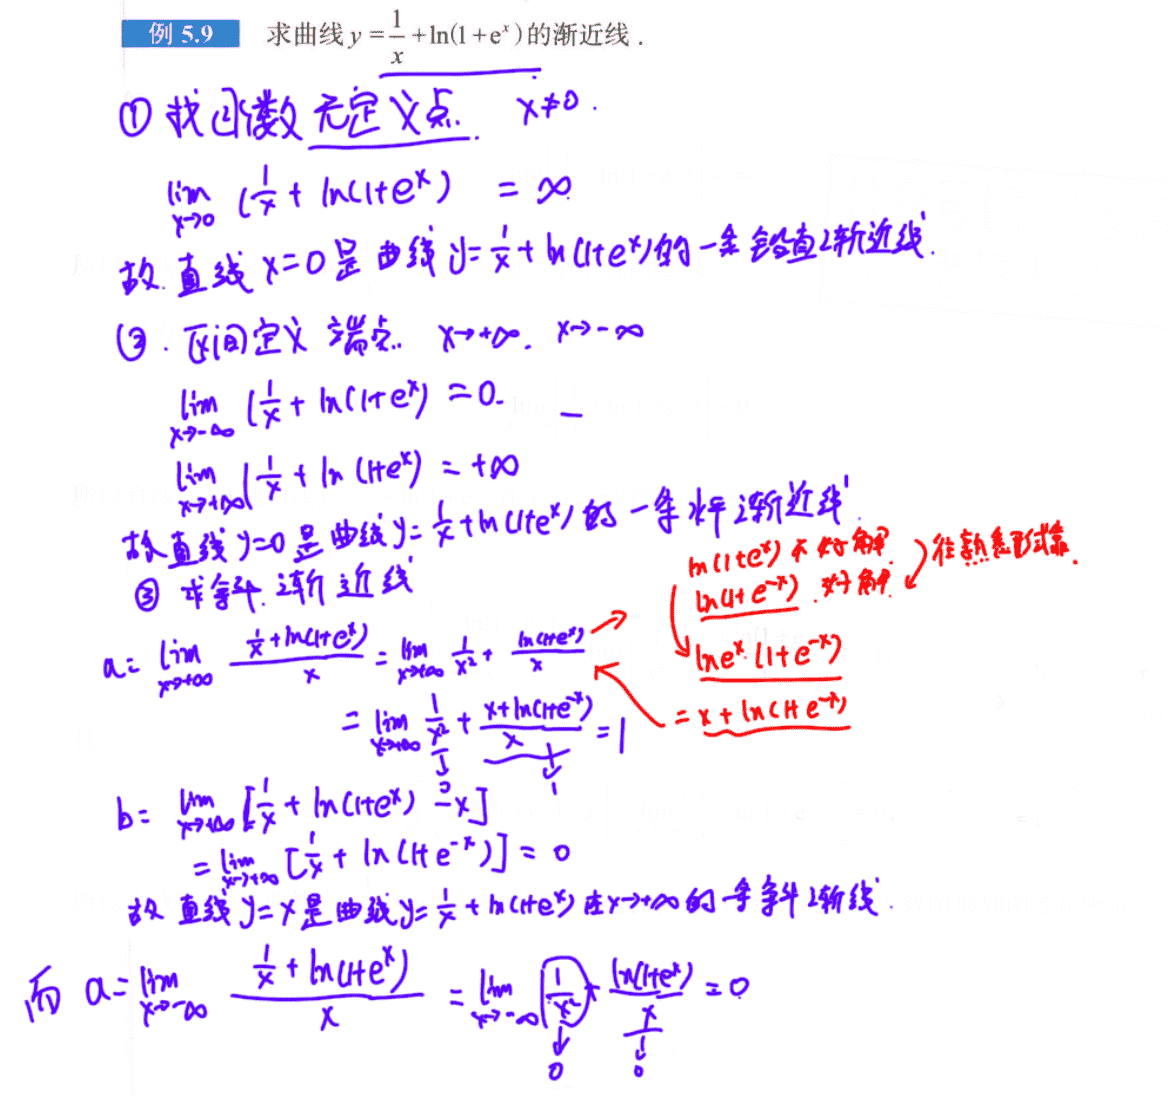 例 5.9 求曲线 y = 1/x + ln(1+e^x) 的渐近线.
① 找函数无定义点. x≠0.
lim x→0 (1/x + ln(1+e^x) = ∞
故.直线 x=0 是曲线 y=1/x+ln(1+e^x)的一条铅直渐近线.
②. 区间定义端点. x→+∞. x→-∞
lim x→-∞ (1/x + ln(1+e^x) = 0.
lim x→+∞ (1/x + ln(1+e^x) = +∞
故直线 y=0 是曲线 y=1/x+ln(1+e^x)的一条水平渐近线.
③ 求斜渐近线
ln(1+e^x) 不好解
ln(1+e^-x).好解.
往熟悉形式靠.
lne^x.(1+e^-x)
= x+ln(1+e^-x)
a= lim x→+∞ (1/x+ln(1+e^x))/x = lim x→+∞ 1/x² + ln(1+e^x)/x
= lim x→+∞ 1/x² + (x+ln(1+e^-x))/x = 1
↓ 0 ↓ 1
b= lim x→+∞ [1/x + ln(1+e^x) - x]
= lim x→+∞ [1/x + ln(1+e^-x)] = 0
故 直线 y=x 是曲线 y=1/x+ln(1+e^x) 在x→+∞的一条斜渐线.
而 a= lim x→-∞ (1/x+ln(1+e^x))/x = lim x→-∞ 1/x² + ln(1+e^x)/x = 0
↓ 0 ↓ 0